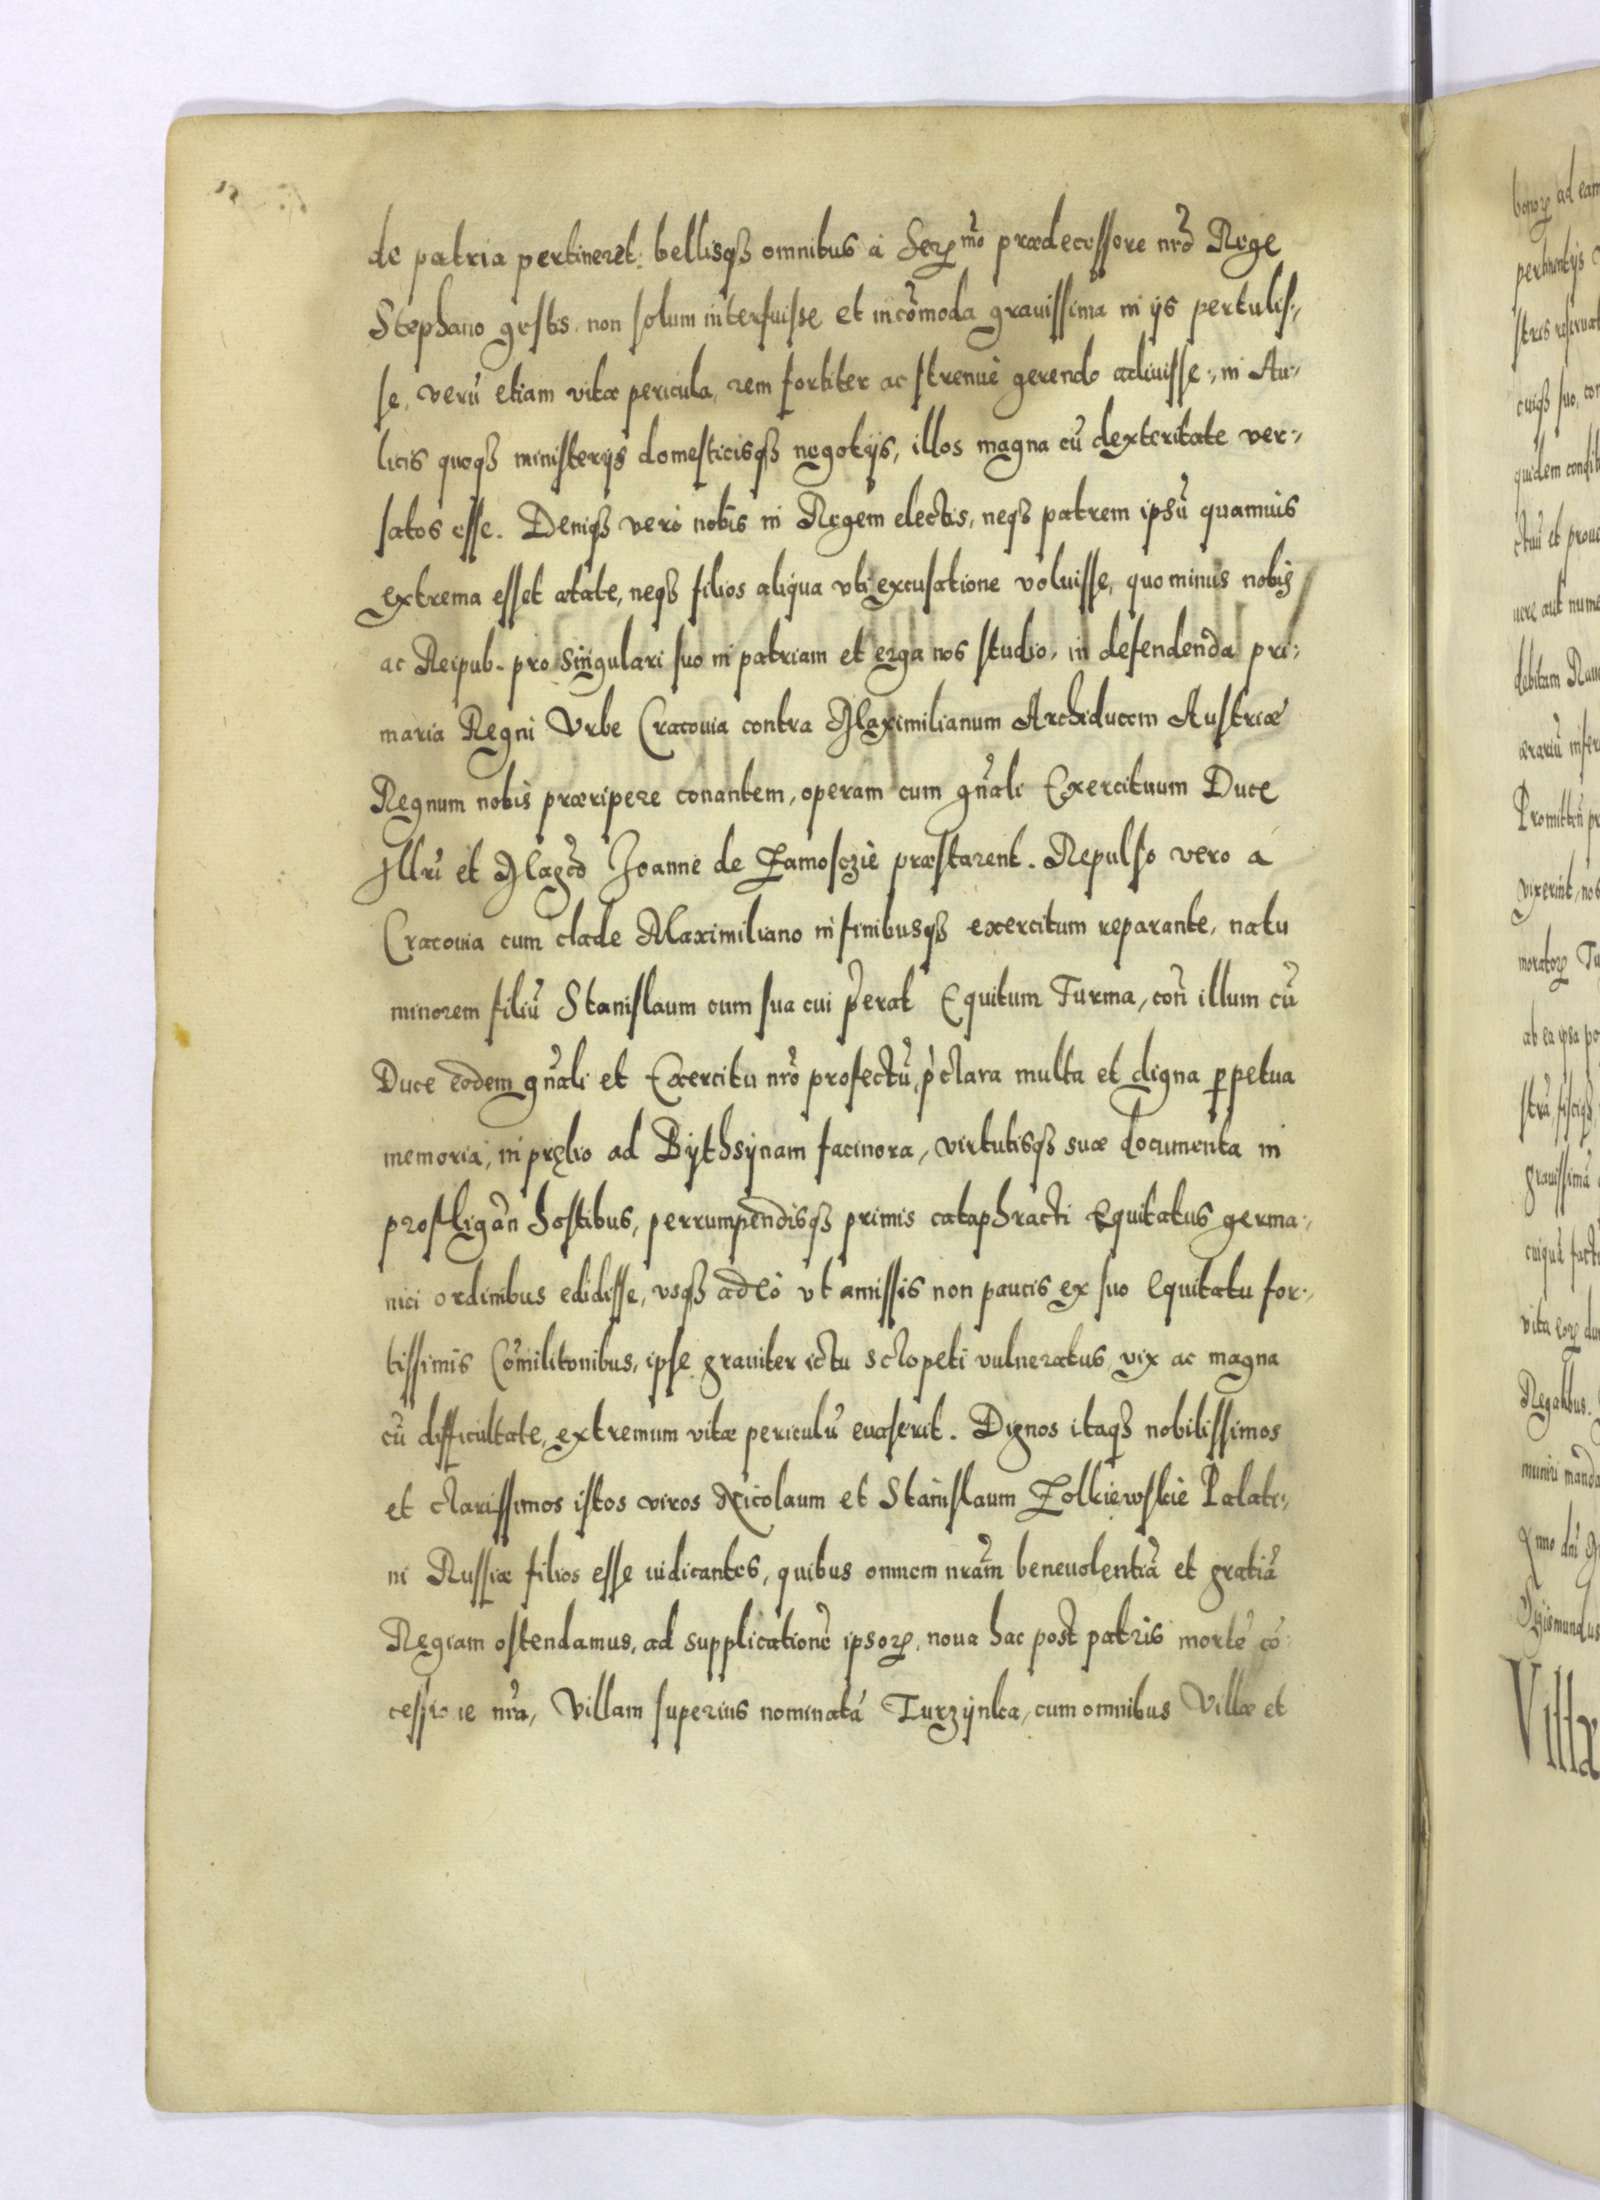 de patria pertineret: bellisqꝫ omnibus à Serꝫ mo prædecessore nr̃o Rege
Stephano gestis, non solum interfuisse et incõmoda grauissima in ijs pertulis-
se, verũ etiam vitæ pericula, rem fortiter ac strenuè gerendo adiuisse, in Au-
licis quoqꝫ ministerijs domesticisqꝫ negotijs, illos magna cũ dexteritate ver-
satos esse. Deniqꝫ verò nobis in Regem electis, neqꝫ patrem ipsũ quamuis
extrema esset ætate, neqꝫ filios aliqua vti excusatione voluisse, quo minus nobis
ac Reipub. pro singulari suo in patriam et erga nos studio, in defendenda pri-
maria Regni Vrbe Cracouia contra Maximilianum Archiducem Austriæ
Regnum nobis præripere conantem, operam cum gñali Exercituum Duce
Illri et Magco Joanne de Zamosczie præstarent. Repulso vero a
Cracouia cum clade Maximiliano in finibusqꝫ exercitum reparante, natu
minorem filiũ Stanislaum cum sua cui p̃erat Equitum Turma, coñ illum cũ
Duce eodem gñali et Exercitu nr̃o profectũ, p̃clara multa et digna ꝑpetua
memoria, in prælio ad Bythsynam facinora, virtutisqꝫ suæ documenta in
profligañ hostibus, perrumpendisqꝫ primis cataphracti Equitatus germa-
nici ordinibus edidisse, vsqꝫ adeò vt amissis non paucis ex suo Equitatu for-
tissimis Cõmilitonibus, ipse grauiter ictu sclopeti vulneratus vix ac magna
cũ difficultate, extremum vitæ periculũ euaserit. Dignos itaqꝫ nobilissimos
et clarissimos istos viros Nicolaum et Stanislaum Zolkiewskie Palati-
ni Russiæ filios esse iudicantes, quibus omnem nrãm beneuolentiã et gratiã
Regiam ostendamus, ad supplicationẽ ipsorꝫ, noua hac post patris mortẽ cõ-
cessione nr̃a, Villam superius nominatã Turzynka, cum omnibus Villæ et